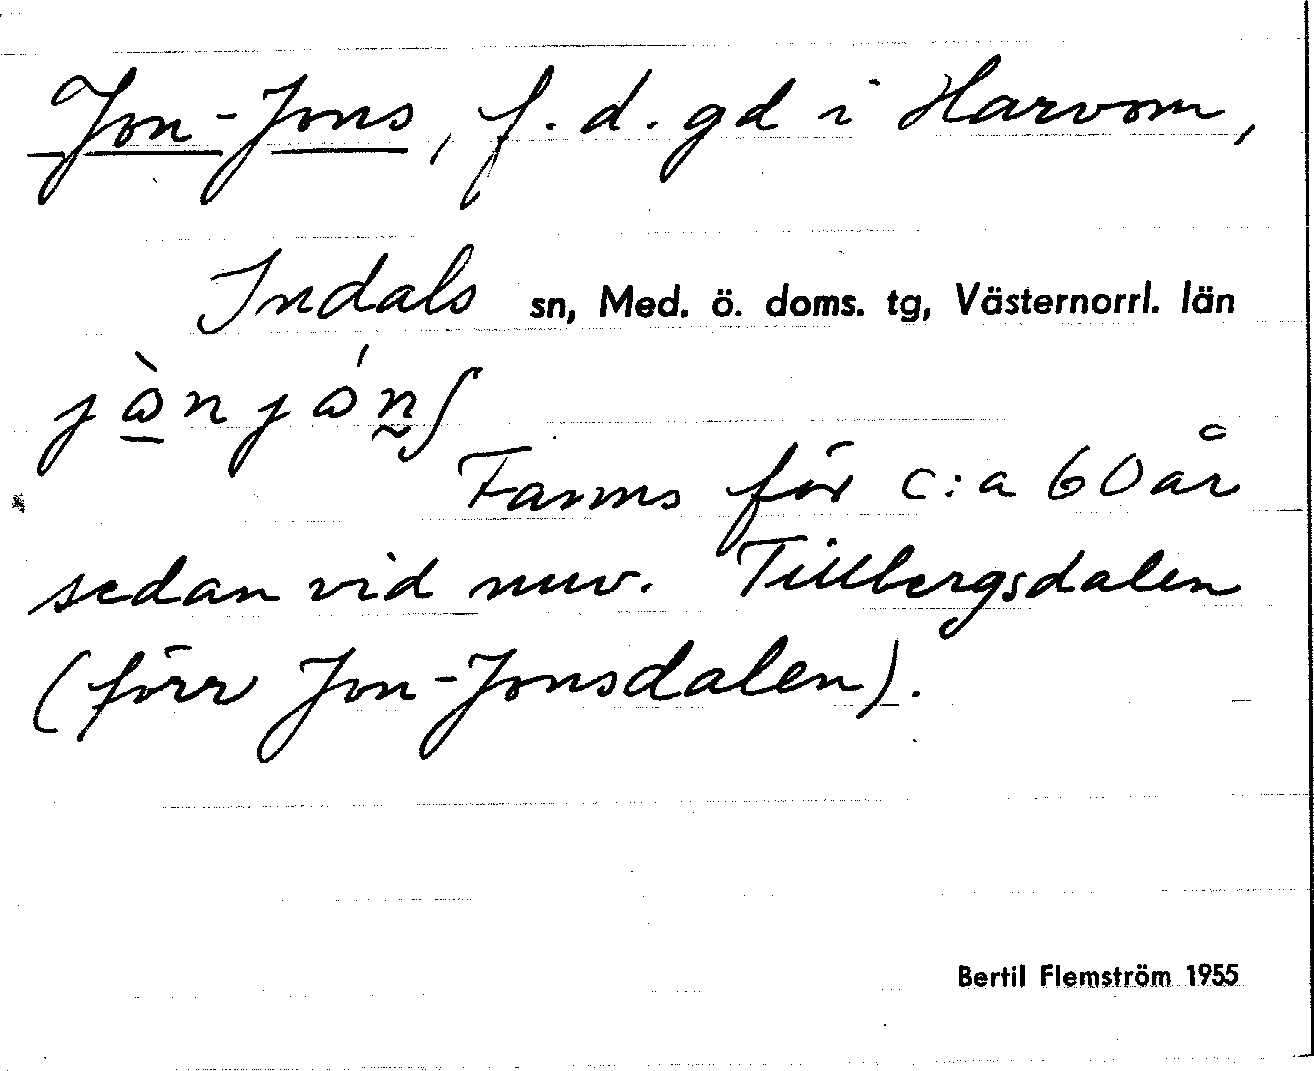 Jon-Jons, f. d. gd i Harvom,
Indals sn, Med. ö. doms. tg, Västernorrl. län
jɷ̀njɷ́n̰ʃ
Fanns för c:a 60 år
sedan vid nuv. Tillbergsdalen
(förr Jon-Jonsdalen).
Bertil Flemström 1955